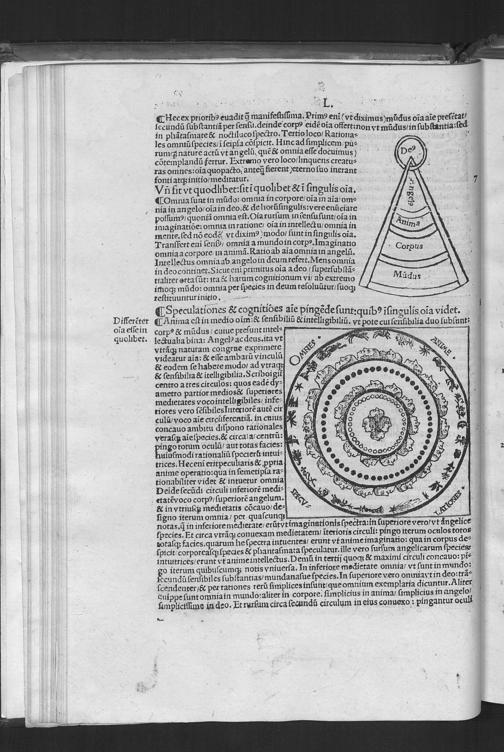 L.
¶Hec ex prioribꝰ euadit ꝙ̃ manifestissima. Primꝰ eni (vt diximus) mũdus oĩa aĩe presẽtat/
secundũ substantiã per sensũ. deinde corpꝰ eidẽ oĩa offert: non vt mũdus/ in substantia: sed
in phãtasmate & noctiluco spectro. Tertio loco/ Rationa-
les omniũ species: ĩ seipsa cõspicit. Hinc ad simplicem pu-
rumꝙ natura actũ vt angelũ, quẽ & omnia esse docuimus
cõtemplandũ fertur. Extremo vero loco/ linquens creatu-
ras omnes: oĩa quopacto, anteꝙ̃ fierent
fonti atqꝫ initio: meditatur.
Vn sit vt quodlibet: sit ĩ quolibet & ĩ singulis oĩa.
¶Omnia sunt in mũdo: omnia in corpore: oĩa in aĩa: om-
nia in angelo: oĩa in deo. & de horũ singulis: vere enũciare
possumꝰ: quoniã omnia est. Oĩa rursum in sensu sunt: oĩa in
imaginatiõe: omnia in ratione: oĩa in intellectu: omnia in
mente. sed nõ eodẽ, vt diximꝰ, modo: sunt in singulis oĩa.
Transfert eni sensꝰ: omnia a mundo in corpꝰ. Imaginatio
omnia a corpore in animã. Ratio ab aĩa omnia in angelũ.
Intellectus omnia ab angelo in deum refert. Mens omnia
in deo continet. Sicut eni primitus oĩa a deo
Deꝰ
Angelꝰ
Anima
Corpus
Mũdus
¶Speculationes & cognitiões aĩe pingẽde sunt: quibꝰ ĩ singulis oĩa videt.
Differẽter
oĩa esse in
quolibet.
¶Anima est in medio oĩm & sensibiliũ & intelligibiliũ. vt pote cui sensibilia duo subsunt:
corpꝰ & mũdus: cuiue presunt intel-
lectualia bina: Angelꝰ ac deus. ita vt
vtrãqꝫ naturam congrue exprimere
videatur aĩa: & esse ambarũ vinculũ
& eodem se habete modo: ad vtraqꝫ
& sensibilia & ĩtelligibilia. Scribo igĩt
centro a tres circulos: quos eadẽ dy-
ametro partior medios & superiores
medietates voco intelligibiles: infe-
riores vero sẽsibiles
culũ: voco aĩe circũferentiã. in cuius
concauo ambitu dispono rationales
verasqꝫ aĩe species. & circa a: centrũ:
pingo rotum oculũ/ aut totas facies:
huiusmodi rationaliũ specierũ intui-
trices.
anime operatio: qua in semetipsa ra-
tionabiliter videt & intuetur omnia
Deĩde secũdi circuli inferiorẽ medi-
etatẽ voco corpꝰ: superiorẽ angelum.
& in vtriusqꝫ medietatis cõcauo de-
signo iterum omnia, per quascunqꝫ
notas. ꝗ̃ in inferiore medietate: erũt vt imaginationis spectra: in superiore vero/ vt angelice
species. Et circa vtrãqꝫ conuexam medietatem/ iterioris circuli: pingo iterum oculos toros
totasqꝫ facies. quarum he spectra intuentes: erunt vt anime imaginatio: qua in corpus de-
spicit: corporeasqꝫ species & phantasmata speculatur. ille vero rursum angelicarum species
intuitrices: erunt vt anime intellectus. Demũ in tertij quoqꝫ & maximi circuli concauo: pi-
go iterum quibuscumqꝫ notis vniuersa. In inferiore medietate omnia/ vt sunt in mundo:
secundũ sensibiles substantias/ mundanasue species. In superiore vero omnia vt in deo: trã-
scendenter/ & per rationes rerũ simplices insunt: que omnium exemplaria dicuntur. Aliter
quippe sunt omnia in mundo: aliter in corpore. simplicius in anima/ simplicius in angelo/
simplicissime in deo. Et rursum circa secundũ circulum in eius conuexo: pingantur oculi
OMNES
ANIME
SPECV
LATIONES